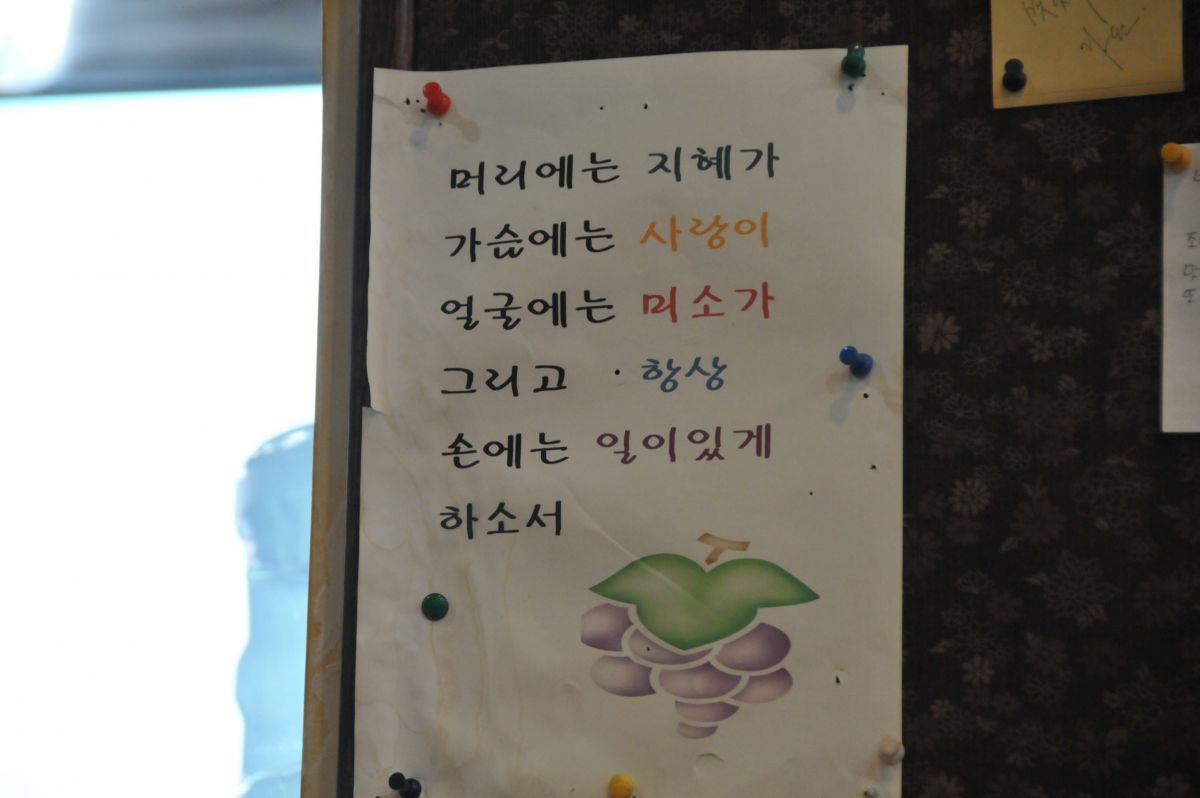 머리에는 지혜가
가슴에는 사랑이
얼굴에는 미소가
그리고 · 항상
손에는 일이있게
하소서